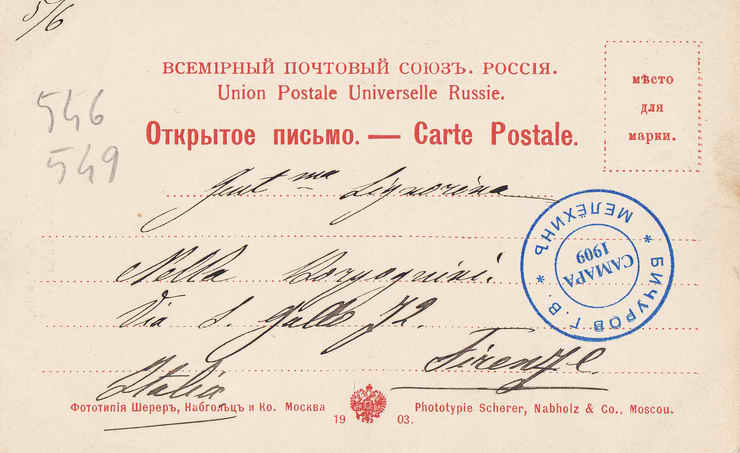 5/6
ВСЕМІРНЫЙ ПОЧТОВЫЙ СОЮЗЪ. РОССІЯ.
Union Postale Universelle Russie.
Открытое письмо. — Carte Postale.
мѣсто
для
марки.
546
549
Gent ma Signorina
Nella
Via S. Gallo 72.
Firenze
Italia
БИЧУРОВ Г. В. * МЕЛЁХИНЪ *
САМАРА
1909
Фототипія Шереръ, Набгольцъ и Ко. Москва
1903.
Phototypie Scherer, Nabholz & Co., Moscou.